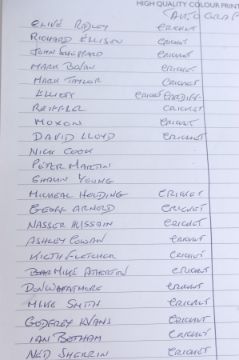 HIGH QUALITY COLOUR PRINT
AUTOGRAP
CLIVE RADLEY CRICKET
RICHARD ELLISON CRICKET
JOHN SHEPHERD CRICKET
MARK CRICKET
MARK TAYLOR CRICKET
ELLIOTT CRICKET
REIFFEL CRICKET
MOXON CRICKET
DAVID LLOYD CRICKET
NICK COOK
PETER MARTIN
SHAUN YOUNG
MICHEAL HOLDING CRICKET
GEOFF ARNOLD CRICKET
NASSER HUSSAIN CRICKET
ASHLEY COWAN CRICKET
KEITH FLETCHER CRICKET
MIKE ATHERTON CRICKET
CRICKET
MIKE SMITH CRICKET
GODFREY EVANS CRICKET
IAN BOTHAM CRICKET
NED SHERRIN CRICKET